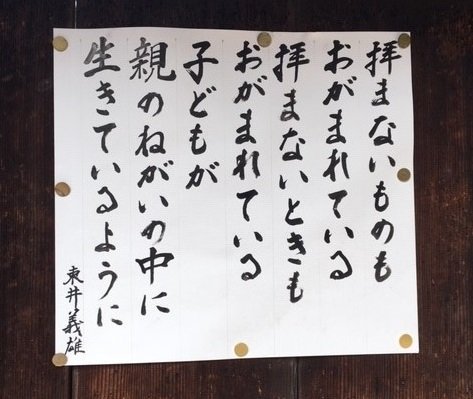 拝まないものも
おがまれている
拝まないときも
おがまれている
子どもが
親のねがいの中に
生きているように
東井義雄